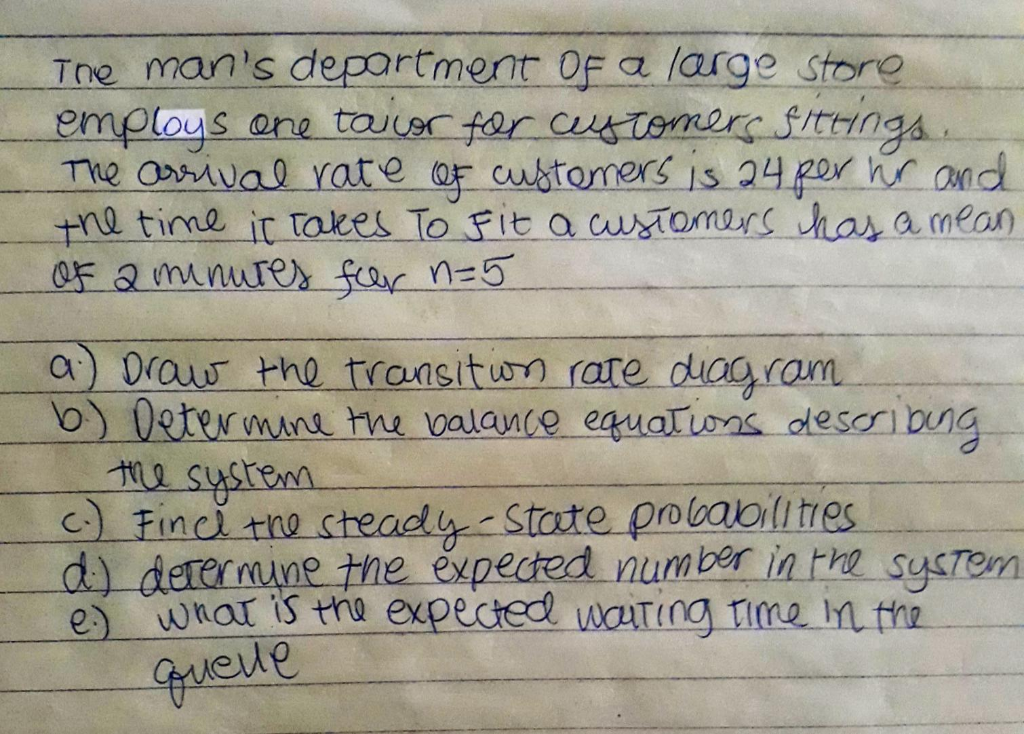 The man's department OF a large store
employs one tailor for customers fittings.
The arrival rate of customers is 24 per hr and
the time it Takes To Fit a customers has a mean
of 2 minutes for n=5
a.) Draw the transition rate diagram
b.) Determine the balance equations describing
the system
c.) Find the steady-state probabilities
d.) determine the expected number in the system
e.) what is the expected waiting time in the
queue